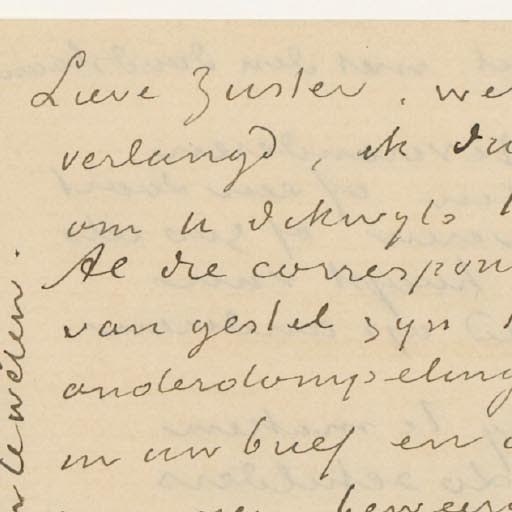 Lieve Zuster, we
verlangd, ik du
om u dikwyls
Al die correspon
van gestel zyn
onderdompeling
in uw brief en